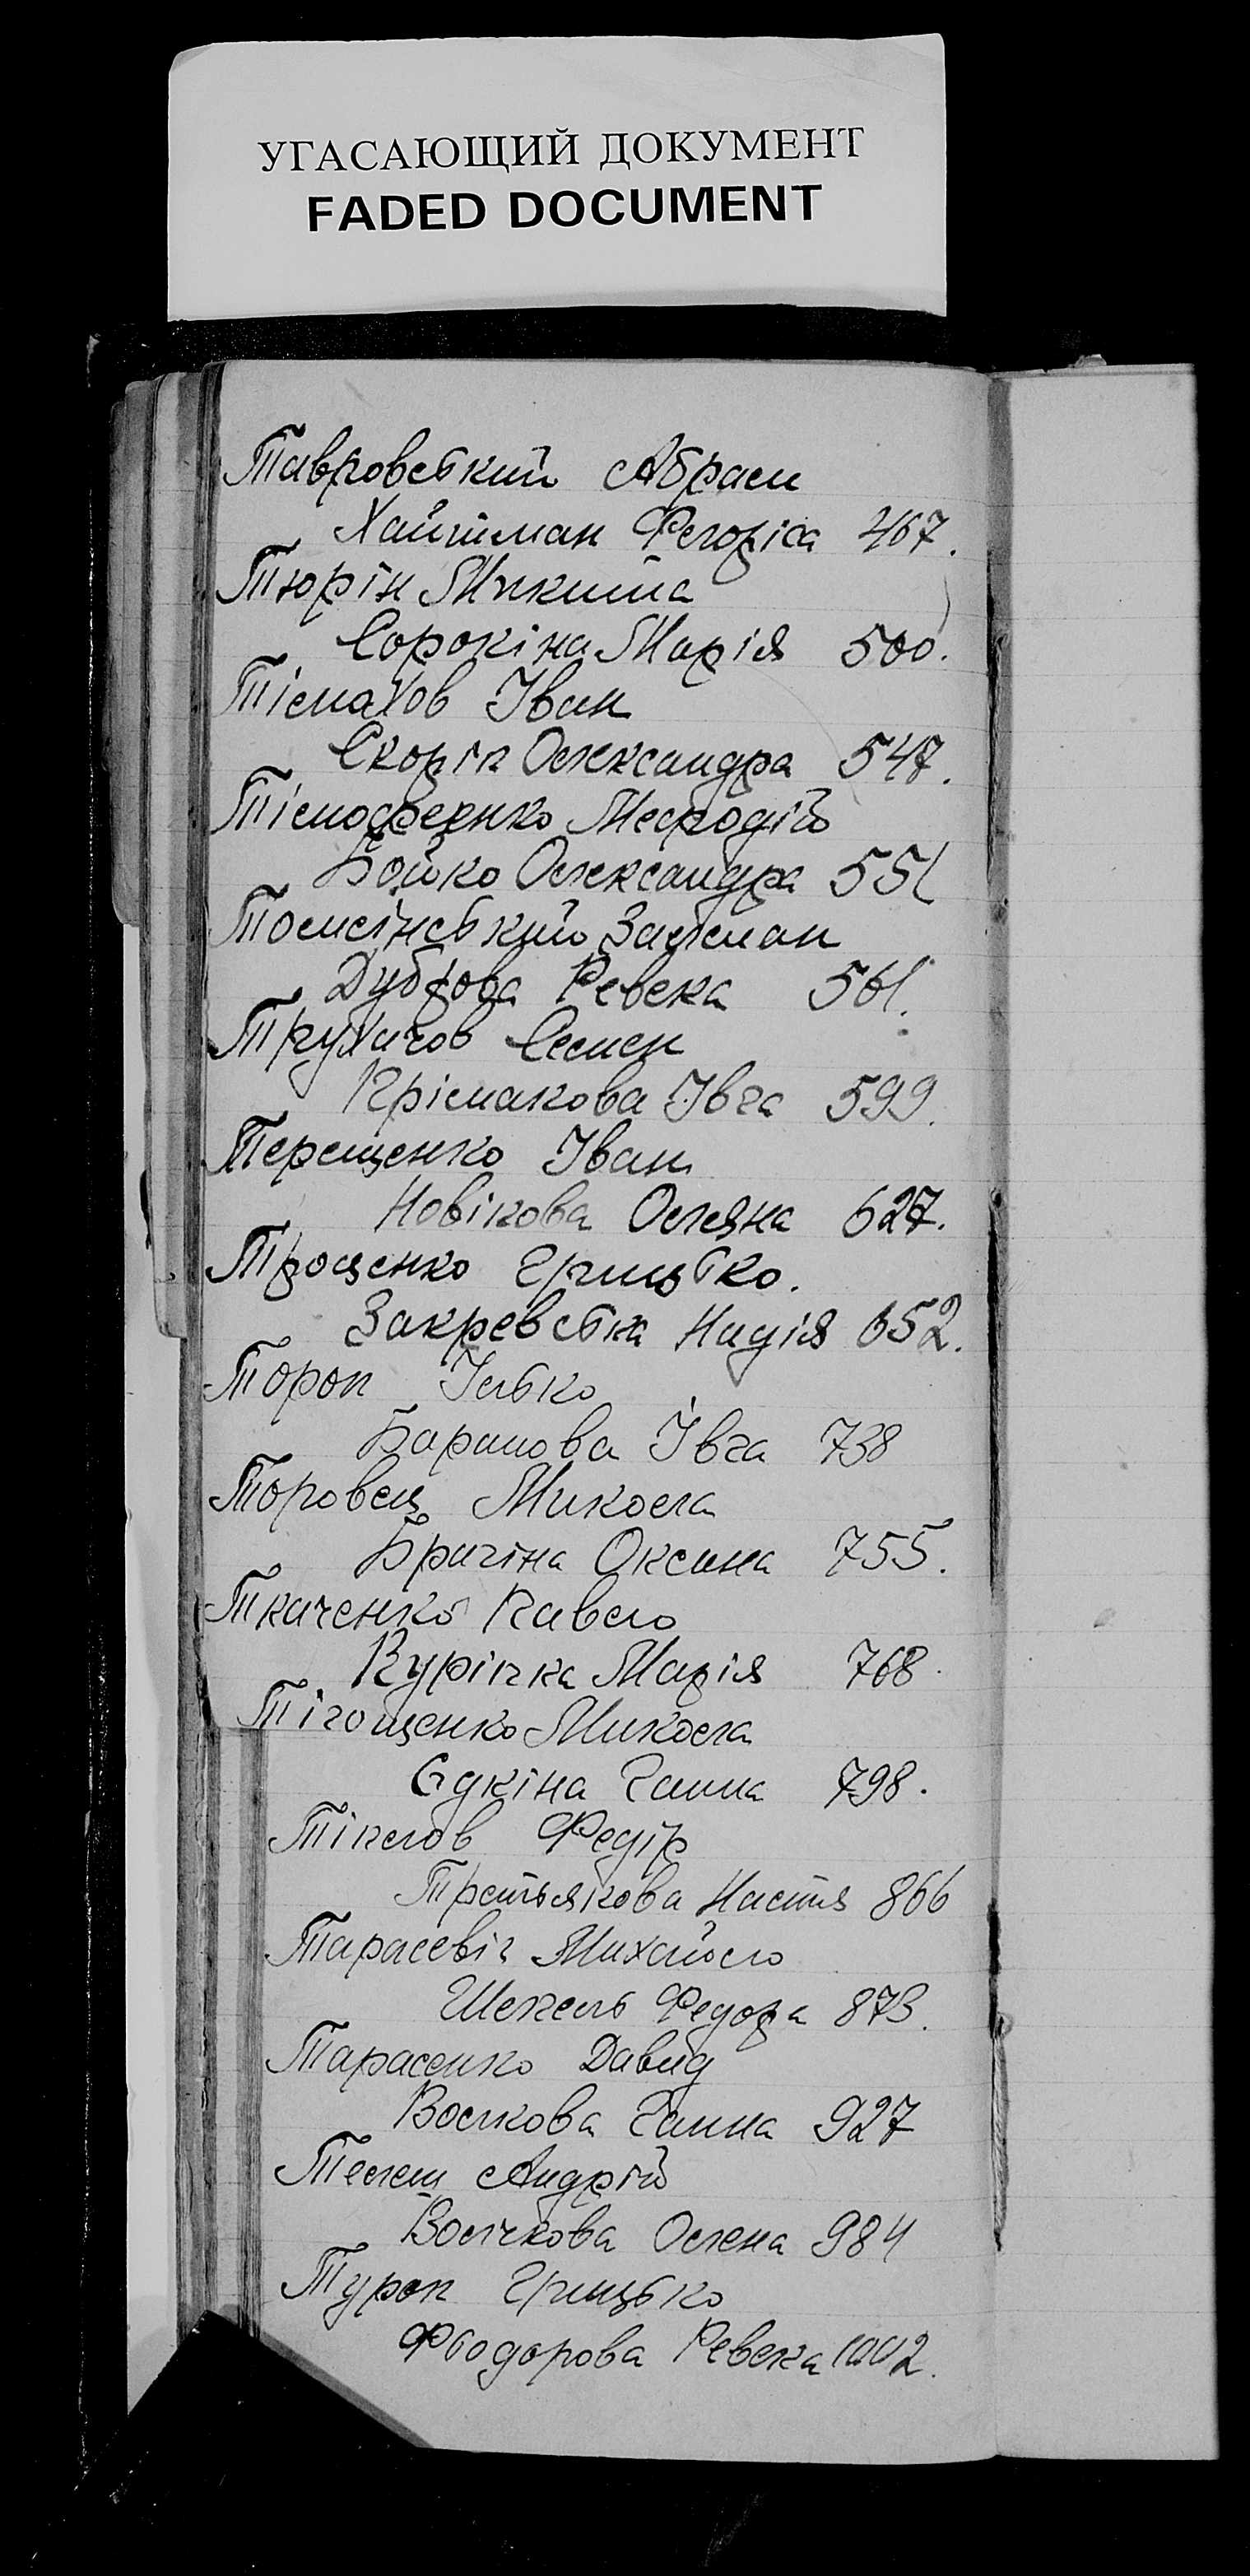 УГАСАЮЩИЙ ДОКУМЕНТ
FADED DOCUMENT
Тавровський Абрам
Хайтман 467.
Тюрін Микита
Сорокіна Марія 500.
Тімахов Іван
Скорік Олександра 547.
Тімофеенко Мефодій
Бойко Олександра 551
Томсінський Залман
Дуброва Ревека 561.
Трухачов Семен
Крімакова Івга 599.
Терещенко Іван
Новікова Оляна 627.
Трощенко Грицько.
Закревська Надія 652.
Тороп Ілько
Баранова Івга 738
Торовец Микола
Бричіна Оксана 755.
Ткаченко Павло
Курічка Марія 768.
Тігощенко Микола
Єдкіна Ганна 798.
Тіклов Федір
Третьякова Настя 866
Тарасевіч Михайло
Шекель Федора 873.
Тарасенко Давид
Волкова Ганна 927
Телеш Андрій
Волчкова Олена 984
Турок Грицько
Фьодорова Ревека 1002.